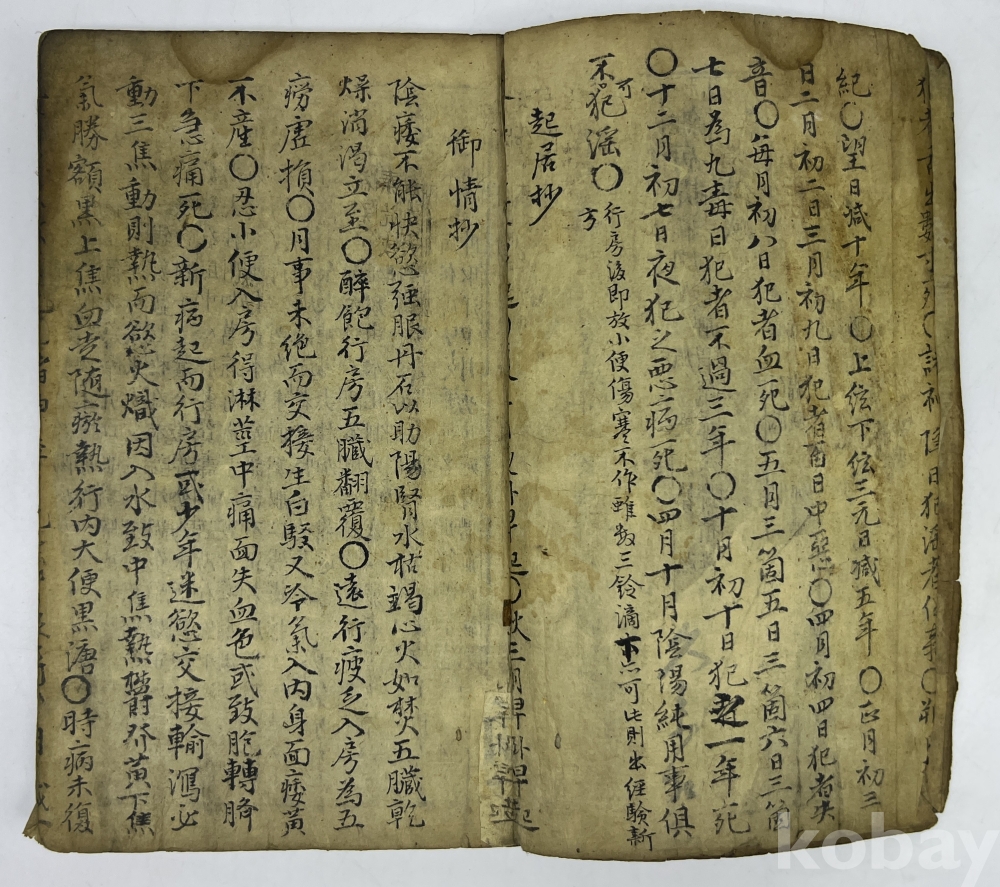 紀〇望日减十年〇上弦下弦三元日减五年〇正月初三
日二月初二日三月初九日犯者百日中惡〇四月初四日犯者失
音〇每月初八日犯者血死〇五月三箇五日三箇六日三箇
七日為九毒日犯者不過三年〇十月初十日犯之一年死
〇十二月初七日夜犯之惡病死〇四月十月陰陽純用事俱
不可犯淫〇行房後即放小便傷寒不作雖數三鈴滴下亦可此則出經驗新
方
起居抄
御情抄
陰痿不能快慾强服丹石以助陽腎水枯竭心火如焚五臟乾
燥消渴立至〇醉飽行房五臟翻覆〇遠行疲乏入房為五
癆虛損〇月事未絶而交接生白駁又冷氣入內身面痿黃
不産〇忍小便入房得淋莖中痛面失血色或致胞轉臍
下急痛死〇新病起而行房或少年迷慾交接輸瀉必
動三焦動則熱而慾火熾因入水致中焦熱鬱發黃下焦
氣勝額黑上焦血走随瘀熱行內大便黑溏〇時病未復
kobay